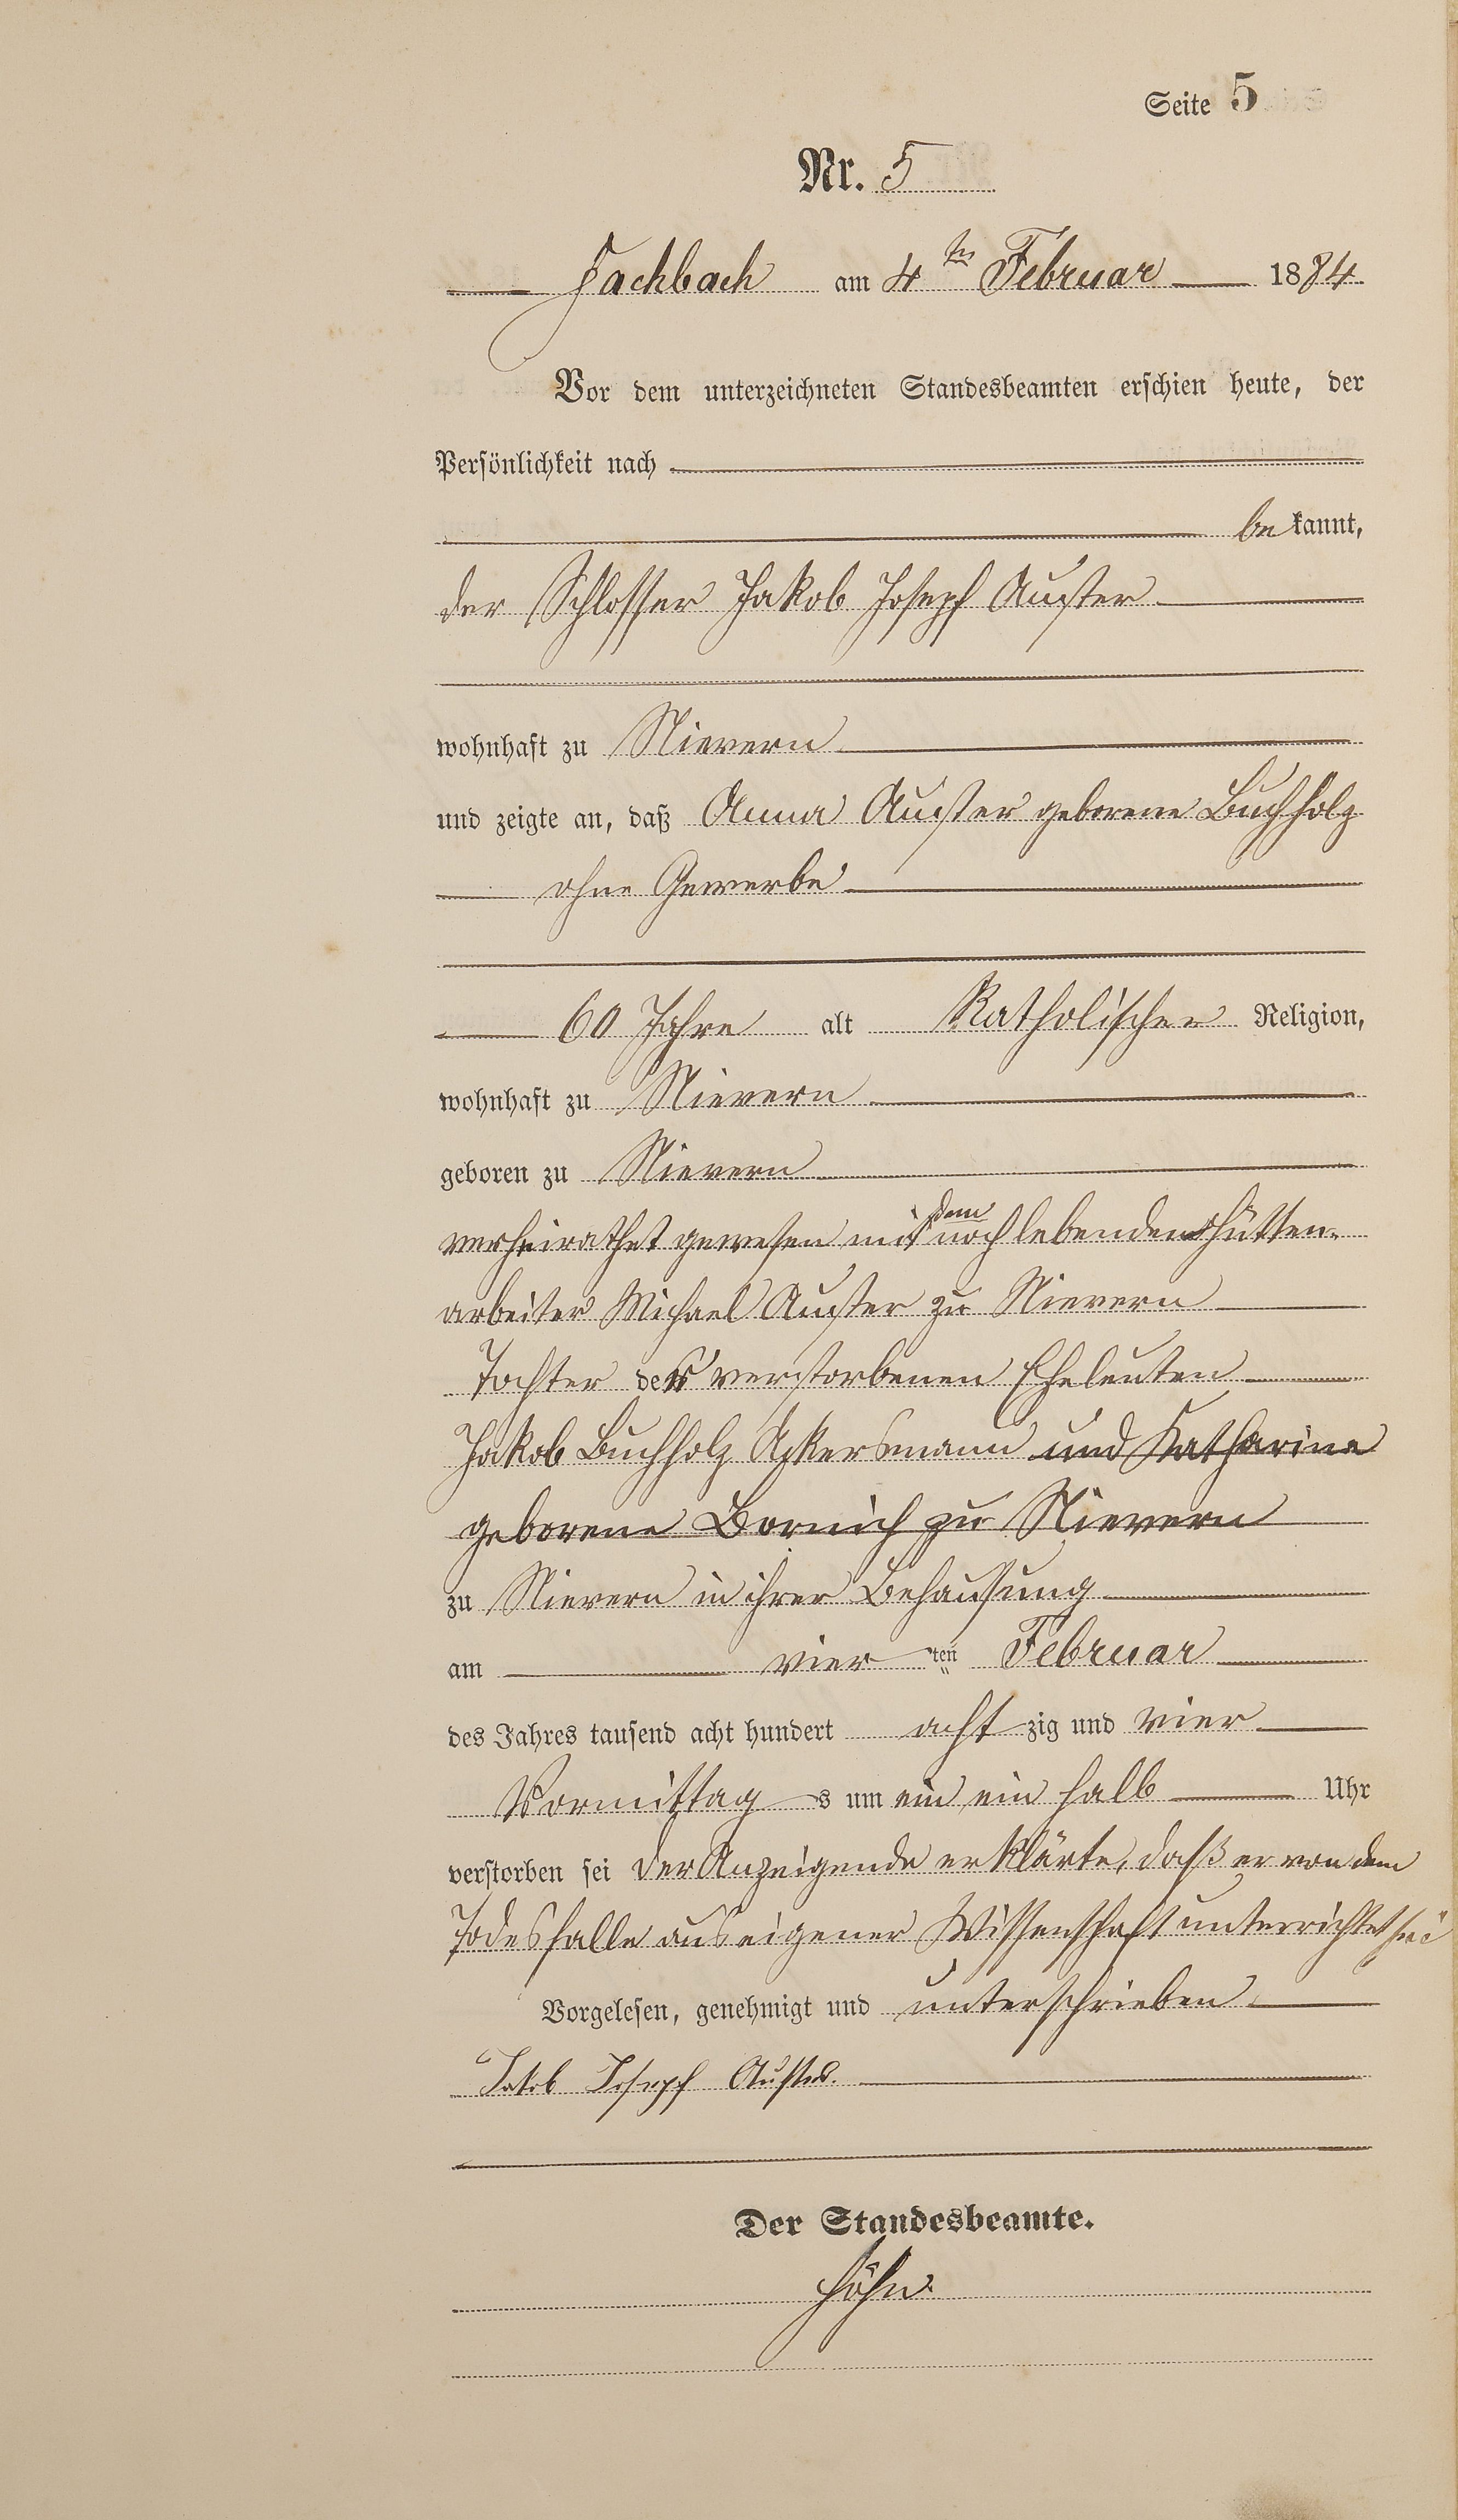 Seite 5
Nr. 5
Fachbach am 4ten Februar 1884
Vor dem unterzeichneten Standesbeamten erschien heute, der
Persönlichkeit nach
bekannt,
der Schlosser Jakob Joseph Auster
wohnhaft zu Nievern
und zeigte an, daß Anna Auster geborene Buchholz
ohne Gewerbe
60 Jahre alt Katholischer Religion,
wohnhaft zu Nievern
geboren zu Nievern
verheirathet gewesen mit dem noch lebenden Hütten-
arbeiter Michael Auster zu Nievern
Tochter der verstorbenen Eheleuten
Jakob Buchholz Ackersmann und Katharina
geborene Bornich zu Nievern
zu Nievern in ihrer Behausung
am vier ten Februar
des Jahres tausend acht hundert acht zig und vier
Vormittag s um ein ein halb Uhr
verstorben sei der Anzeigende erklärte, daß er von dem
Todesfalle aus eigener Wissenschaft unterrichtet sei
Vorgelesen, genehmigt und unterschrieben
Jakob Joseph Auster.
Der Standesbeamte.
Höhn